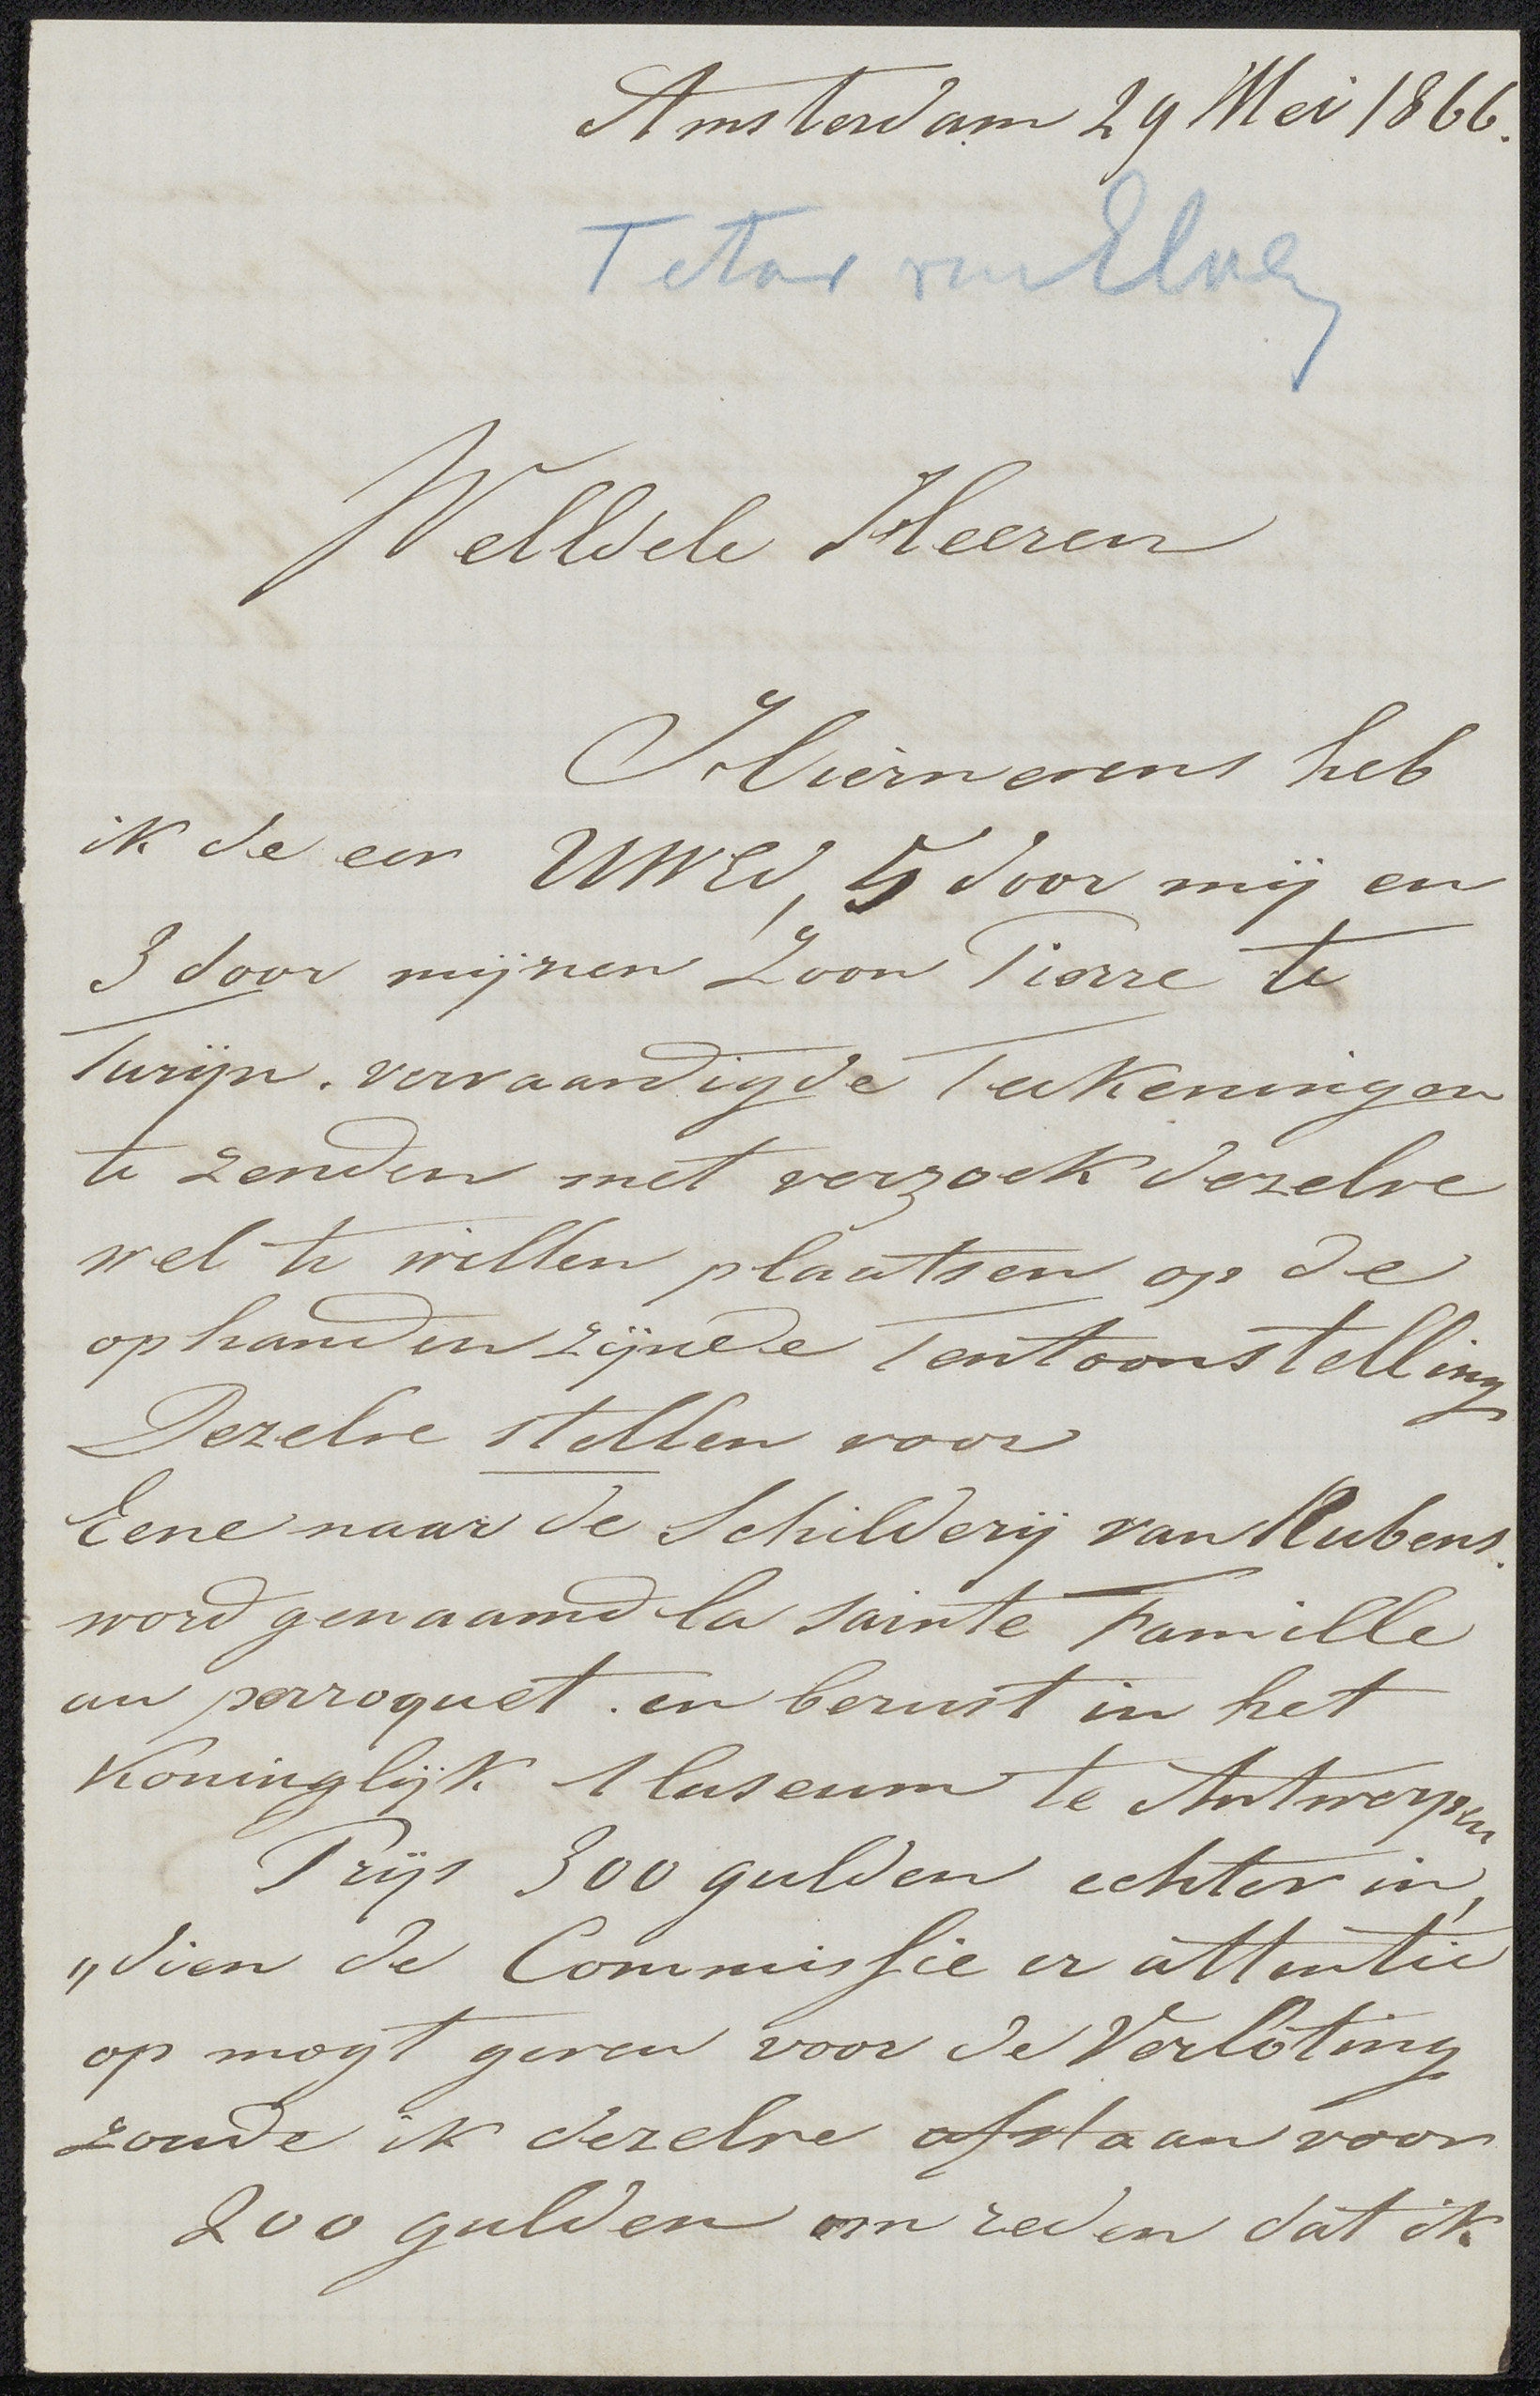 Amsterdam 29 Mei 1866.
Tetar van Elven
WelEdele Heeren
Hiernevens heb
ik de eer UWEd, 5 door mij en
3 door mijnen Zoon Pierre te
Turijn. vervaardigde Teekeningen
te zenden met verzoek dezelve
wel te willen plaatsen op de
ophanden zijnde Tentoonstelling
Dezelve stellen voor
Eene naar de Schilderij van Rubens.
word genaamd la sainte Famille
au perroquet. en berust in het
Koninglijk Museum te Antwerpen
Prijs 300 gulden echter in,
„dien de Commissie er attentie
op mogt geven voor de Verloting
zoude ik dezelve afstaan voor
200 gulden om reden dat ik